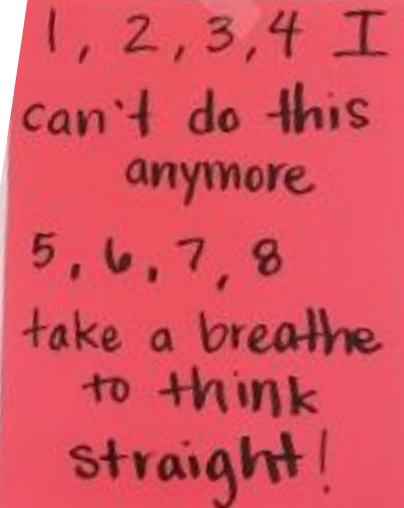 1, 2, 3, 4 I
can't do this
anymore
5, 6, 7, 8
take a breathe
to think
straight!